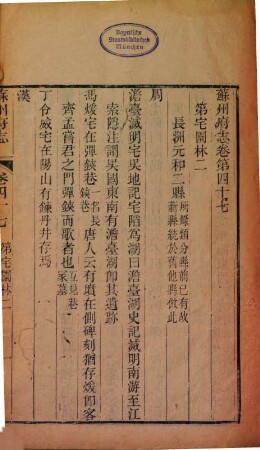 Bayerische
Staatsbibliothek
München
蘇州府志卷第四十七
第宅園林二
長洲元和二縣所錄類分縣已有故
新縣統於舊他縣倣此
周
澹臺滅明宅吳地記宅陷為湖曰澹臺湖史記滅明南游至江
索隱注謂吳國東南有澹臺湖卽其遺跡
馮煖宅在彈鋏巷一名長
鋏巷唐人云有墳在側碑刻猶存煖卽客
齊孟嘗君之門彈鋏而歌者也互見巷
冢墓
漢
丁令威宅在陽山有鍊丹井存焉
蘇州府志
卷四十七
第宅園林二